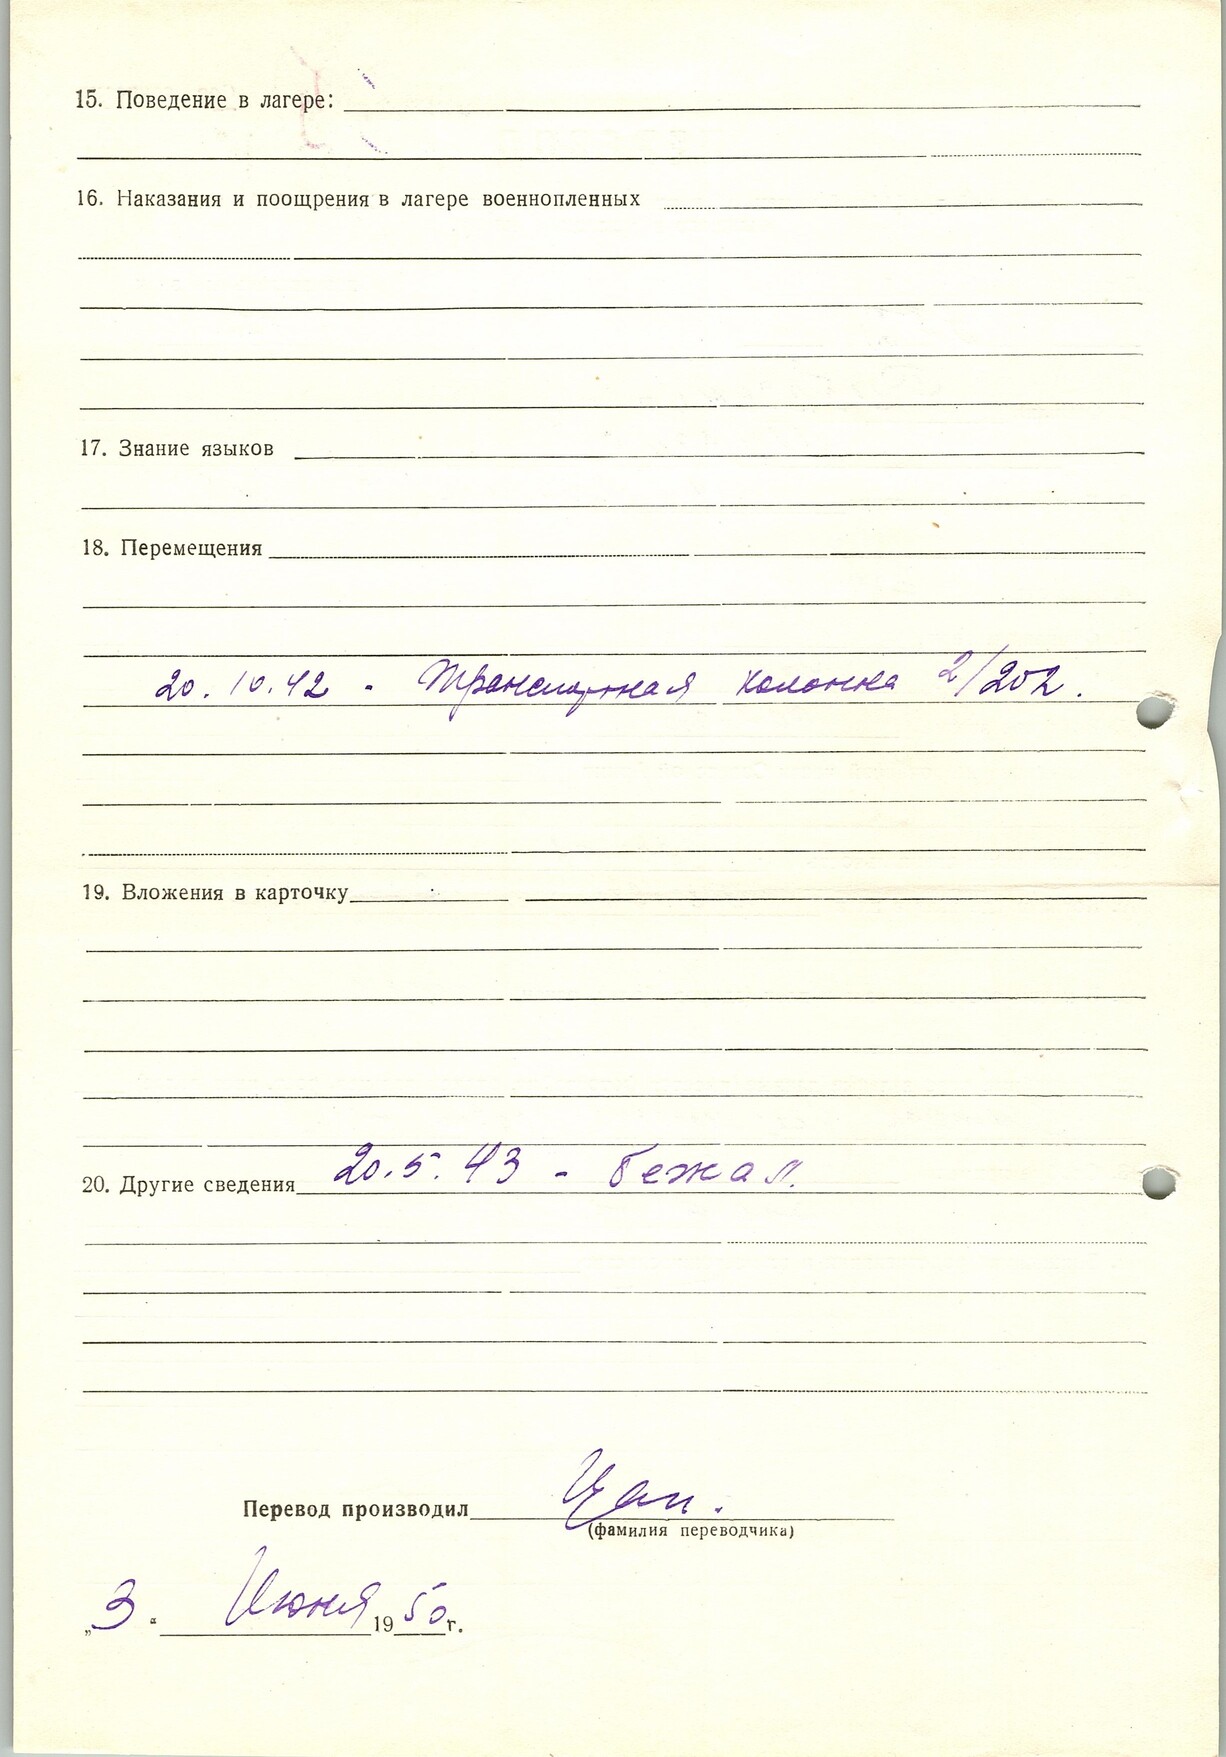 15. Поведение в лагере:
16. Наказания и поощрения в лагере военнопленных
17. Знание языков
18. Перемещения
20.10.42 - Транспортная колонна 2/202.
19. Вложения в карточку
20. Другие сведения 20.5.43 - бежал.
Перевод производил Цап.
(фамилия переводчика)
„3“ Июня 1950 г.